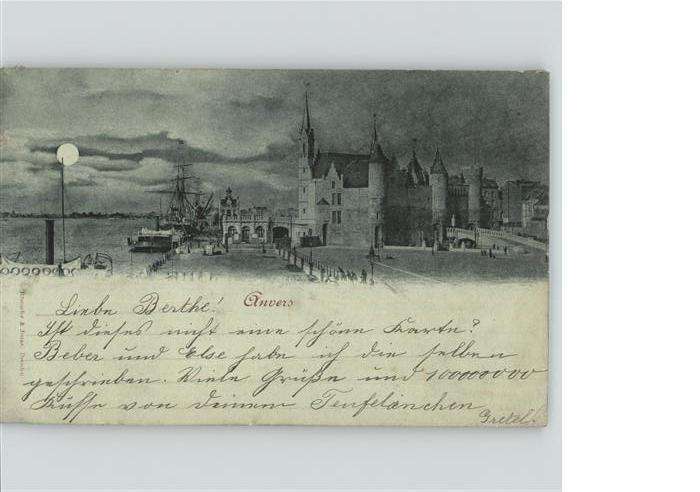 Anvers
Liebe Berthe!
Ist dieses nicht eine schöne Karte?
Beber und Else habe ich die selben
geschrieben. Viele Grüße und 100000000
Küsse von deinem Teufelänchen
Gretel.